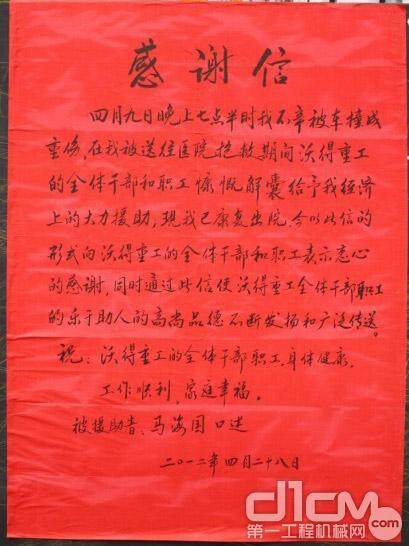 感谢信
四月九日晚上七点半时我不幸被车撞成
重伤，在我被送往医院抢救期间沃得重工
的全体干部和职工慷慨解囊给予我经济
上的大力援助，现我已康复出院，今以此信的
形式向沃得重工的全体干部和职工表示衷心
的感谢，同时通过此信使沃得重工全体干部职工
的乐于助人的高尚品德不断发扬和广泛传送。
祝：沃得重工的全体干部职工身体健康，
工作顺利，家庭幸福。
被援助者：马海国口述
二〇一二年四月二十八日
d1cm
第一工程机械网